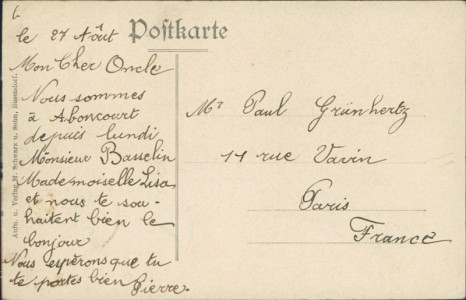 le 27 Août
Postkarte
Mon Cher Oncle
Nous sommes
à Aboncourt
depuis lundi
Monsieur Basselin
Mademoiselle Lisa
et nous te sou-
haitent bien le
bonjour
Nous espérons que tu
te portes bien Pierre.
Mr Paul Grünhertz
14 rue Vavin
Paris
France
Aufn. u. Verlag